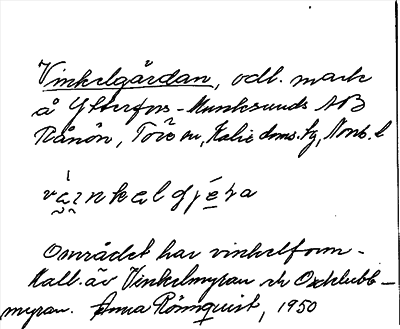 Vinkelgärdan, odl. mark
å Ytterfors-Munksunds AB
Rånön, Töre sn, Kalix doms.hg, Norrb. l
Området har vinkelform.
Kall. äv Vinkelmyran och Oxklubb-
myran. Anna Rönnquist, 1950